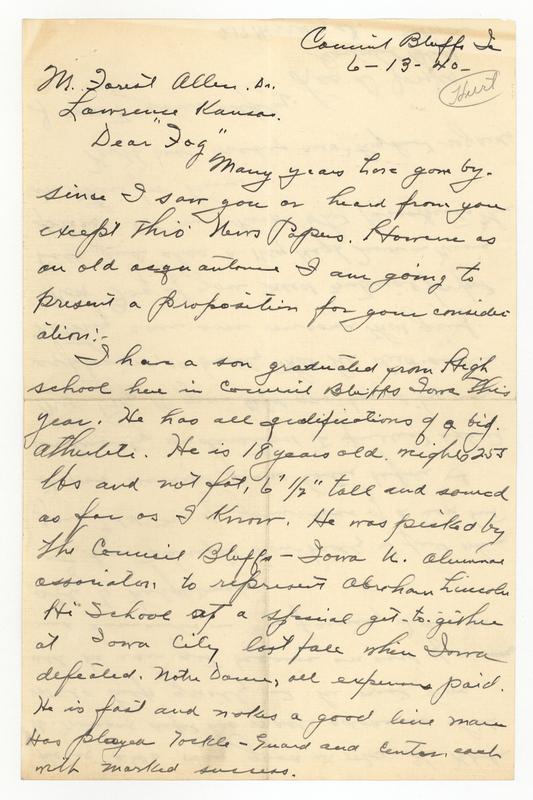 Council Bluffs Ia
6-13-40-
Hurt
M. Forest Allen. Dr.
Lawrence Kansas.
Dear "Fog"
Many years have gone by.
since I saw you or heard from you
except thro' News Papers. However as
an old acquantance I am going to
present a proposition for your consider
ation:-
I have a son graduated from High
school here in Council Bluffs Iowa this
year. He has all qualifications of a big.
athulete. He is 18 years old. weighs 255
lbs and not fat, 6' 1/2" tall and sound
as far as I know. He was picked by
the Council Bluffs - Iowa U. Alumnae
association to represent Abraham Lincoln
Hi School at a special get-to-gither
at Iowa City last fall when Iowa
defeated. Notre Dame, all expenses paid.
He is fast and makes a good line man
Has played Tackle - Guard and Center, each
with marked success.